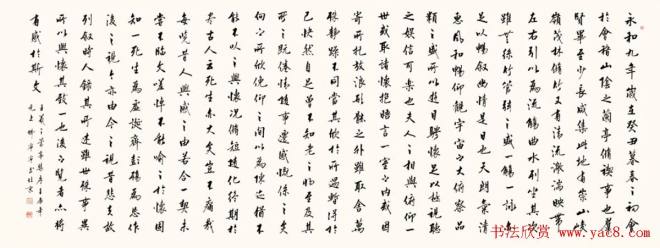 永和九年歲在癸丑暮春之初會
於會稽山陰之蘭亭脩禊事也羣
賢畢至少長咸集此地有崇山峻
嶺茂林脩竹又有清流激湍映帶
左右引以為流觴曲水列坐其次
雖無絲竹管弦之盛一觴一詠亦
足以暢叙幽情是日也天朗氣清
惠風和暢仰觀宇宙之大俯察品
類之盛所以遊目騁懷足以極視聽
之娛信可樂也夫人之相與俯仰一
世或取諸懷抱晤言一室之內或因
寄所託放浪形骸之外雖取舍萬
殊靜躁不同當其欣於所遇暫得於
己快然自足曾不知老之將至及其
所之既倦情隨事遷感慨係之矣
向之所欣俛仰之間以為陳迹猶不
能不以之興懷況脩短隨化終期於
盡古人云死生亦大矣豈不痛哉
每覽昔人興感之由若合一契未
嘗不臨文嗟悼不能喻之於懷固
知一死生為虛誕齊彭殤為妄作
後之視今亦由今之視昔悲夫故
列叙時人錄其所述雖世殊事異
所以興懷其致一也後之覽者亦將
有感於斯文
王羲之蘭亭集序
书法欣赏 www.yac8.com